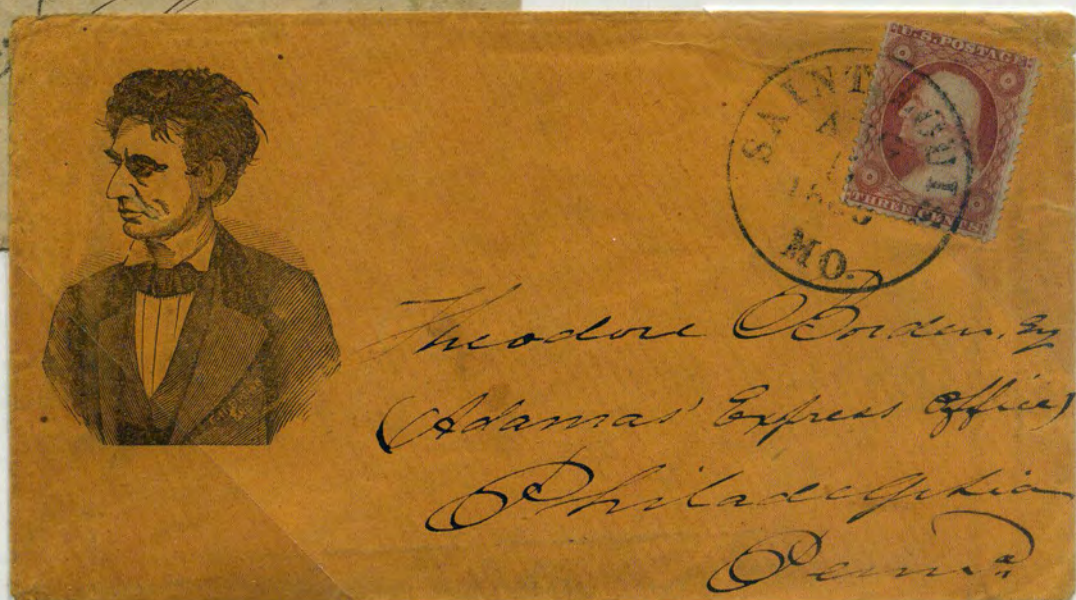 U.S. POSTAGE
THREE CENTS
SAINT LOUIS
MO.
Theodore Borden, Esq
(Adamas' Express Office)
Philadelphia
Penn.a